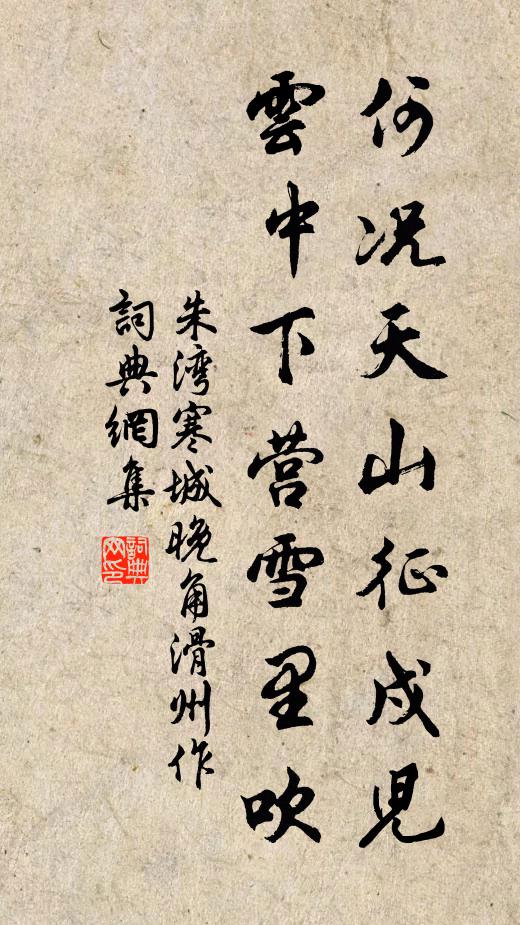 何况天山征戍児
雲中下营雪里吹
朱湾寒城晚角滑州作
詞典網集
詞典网印